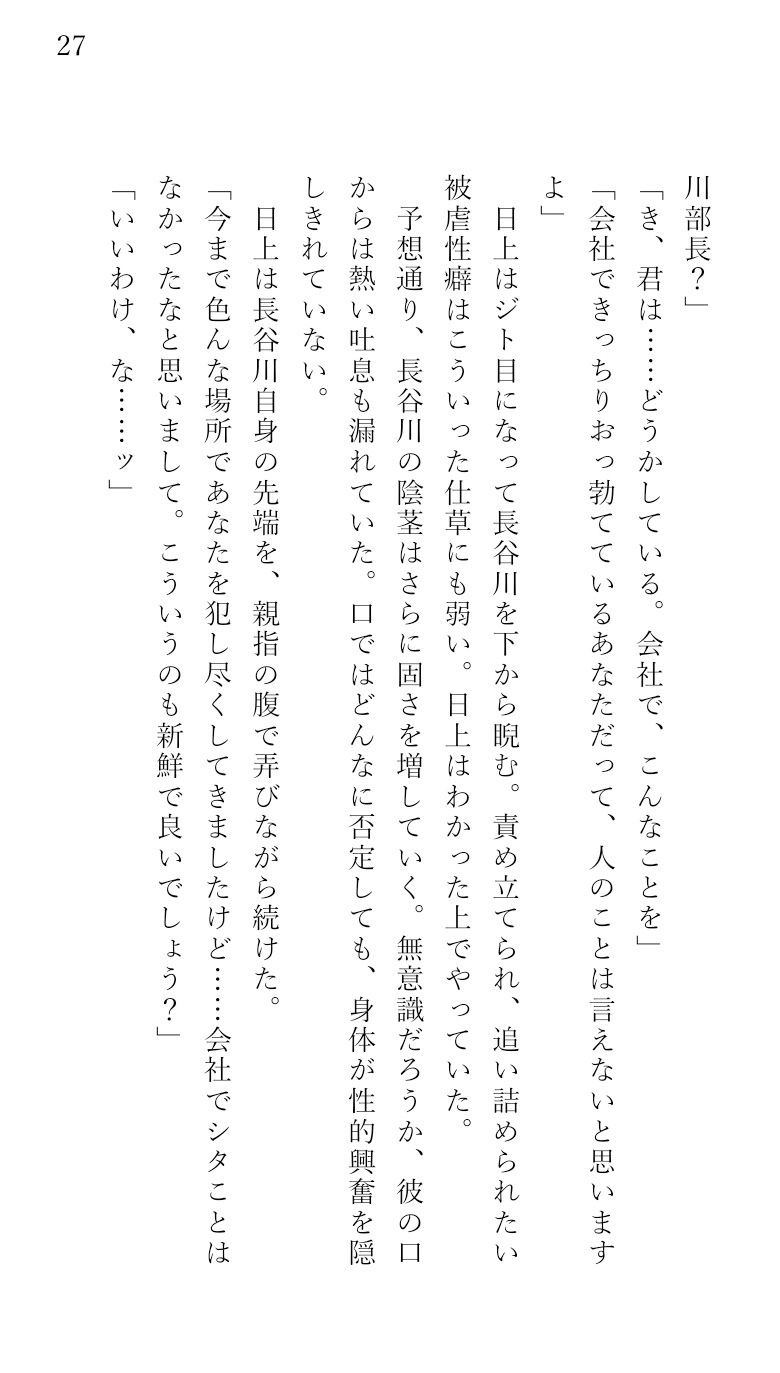 27
川部長？」
「き、君は……どうかしている。会社で、こんなことを」
「会社できっちりおっ勃てているあなただって、人のことは言えないと思います
よ」
　日上はジト目になって長谷川を下から睨む。責め立てられ、追い詰められたい
被虐性癖はこういった仕草にも弱い。日上はわかった上でやっていた。
　予想通り、長谷川の陰茎はさらに固さを増していく。無意識だろうか、彼の口
からは熱い吐息も漏れていた。口ではどんなに否定しても、身体が性的興奮を隠
しきれていない。
　日上は長谷川自身の先端を、親指の腹で弄びながら続けた。
「今まで色んな場所であなたを犯し尽くしてきましたけど……会社でシタことは
なかったなと思いまして。こういうのも新鮮で良いでしょう？」
「いいわけ、な……ッ」